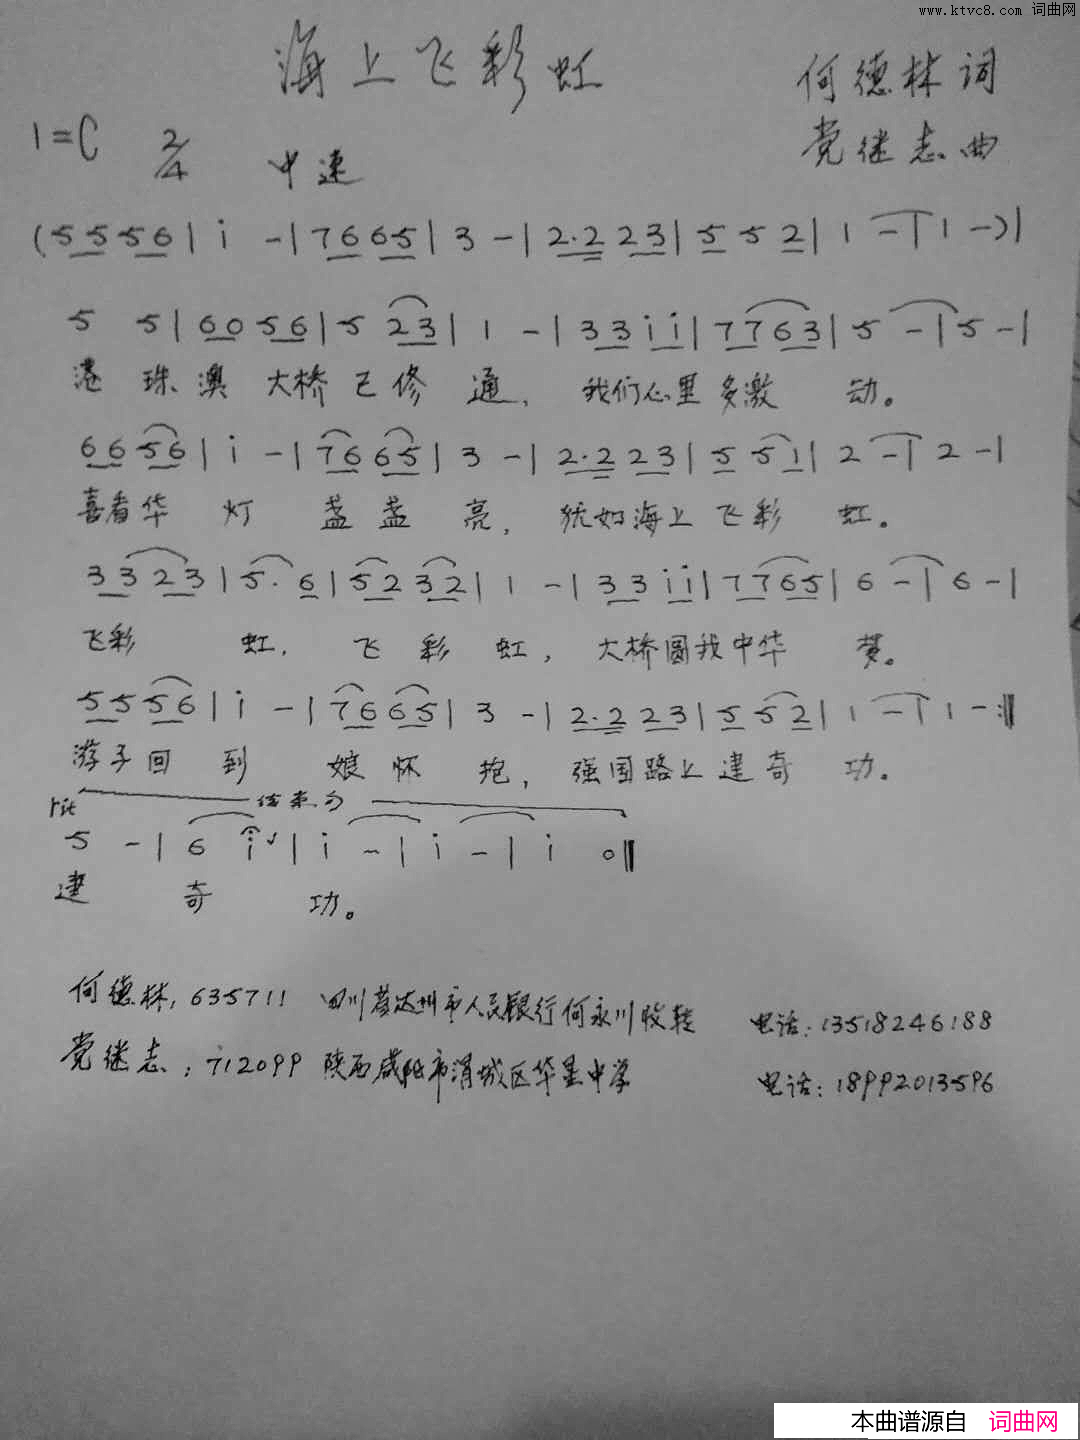 www.ktvc8.com 词曲网
海上飞彩虹
何德林词
1=C 2/4 中速
党继志曲
(5 5 5 6 | i - | 7 6 6 5 | 3 - | 2. 2 2 3 | 5 5 2 | 1 - | 1 -) |
5 5 | 6 0 5 6 | 5 2 3 | 1 - | 3 3 i i | 7 7 6 3 | 5 - | 5 - |
港 珠 澳 大桥 已修 通, 我们心里 多激 动。
6 6 5 6 | i - | 7 6 6 5 | 3 - | 2. 2 2 3 | 5 5 1 | 2 - | 2 - |
喜看华 灯 盏 盏 亮, 犹如海上 飞彩 虹。
3 3 2 3 | 5. 6 | 5 2 3 2 | 1 - | 3 3 i i | 7 7 6 5 | 6 - | 6 - |
飞彩 虹, 飞 彩 虹, 大桥圆我中华 梦。
5 5 5 6 | i - | 7 6 6 5 | 3 - | 2. 2 2 3 | 5 5 2 | 1 - | 1 - :‖
游子回 到 娘 怀 抱, 强国路上 建奇 功。
rit 结束句
5 - | 6 i | i - | i - | i 0 ‖
建 奇 功。
何德林, 635711 四川省达州市人民银行何永川收转 电话: 13518246188
党继志: 712099 陕西咸阳市渭城区华星中学 电话: 18992013596
本曲谱源自 词曲网